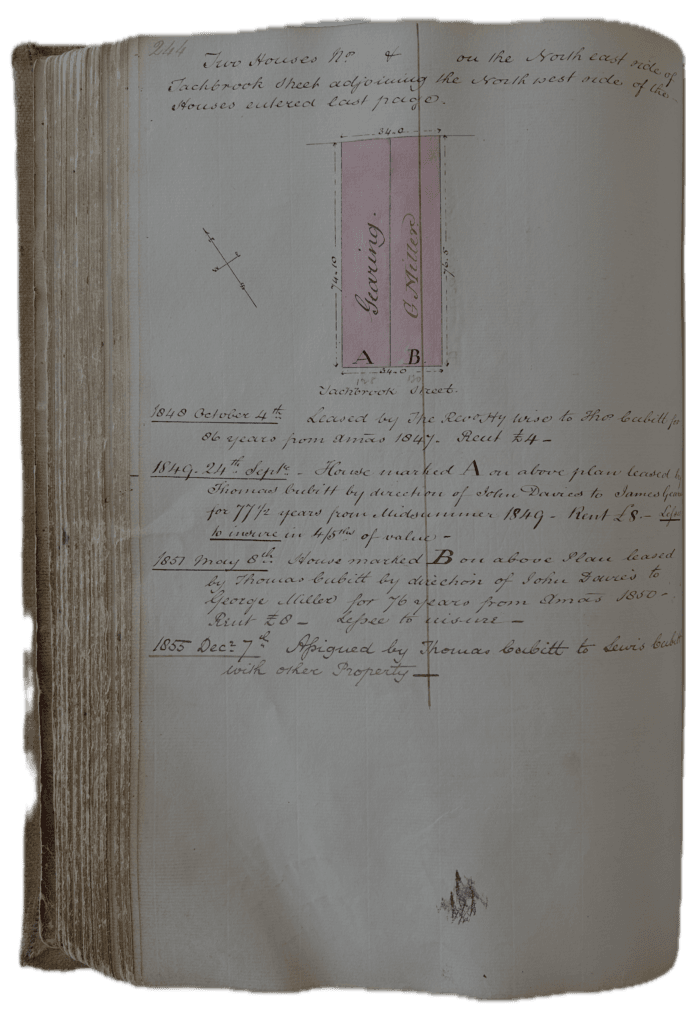 244
Two Houses No. & on the North east side of
Tachbrook Street adjoining the North west side of the
Houses entered last page.
34.0
74.10
Gearing.
G. Miller
76.8
A B
34.0
Tachbrook Street.
1848 October 4th. Leased by The Revd. Hy Wise to Thos Cubitt for
86 years from Xmas 1847. Rent £4 –
1849. 24th Septr. – House marked A on above plan leased by
Thomas Cubitt by direction of John Davies to James
for 77 1/2 years from Midsummer 1849 – Rent £8. – Lessee
to insure in 4/5ths of value –
1851 May 8th. House marked B on above Plan leased
by Thomas Cubitt by direction of John Davies to
George Miller for 76 years from Xmas 1850 –
Rent £8 – Lessee to insure –
1855 Decr. 7th. Assigned by Thomas Cubitt to Lewis Cubitt
with other Property –